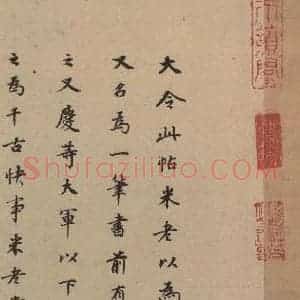 大令此帖米老以為
又名為一筆書前有
之又慶等大軍以下
之為千古快事米老
Shufaziliao.com